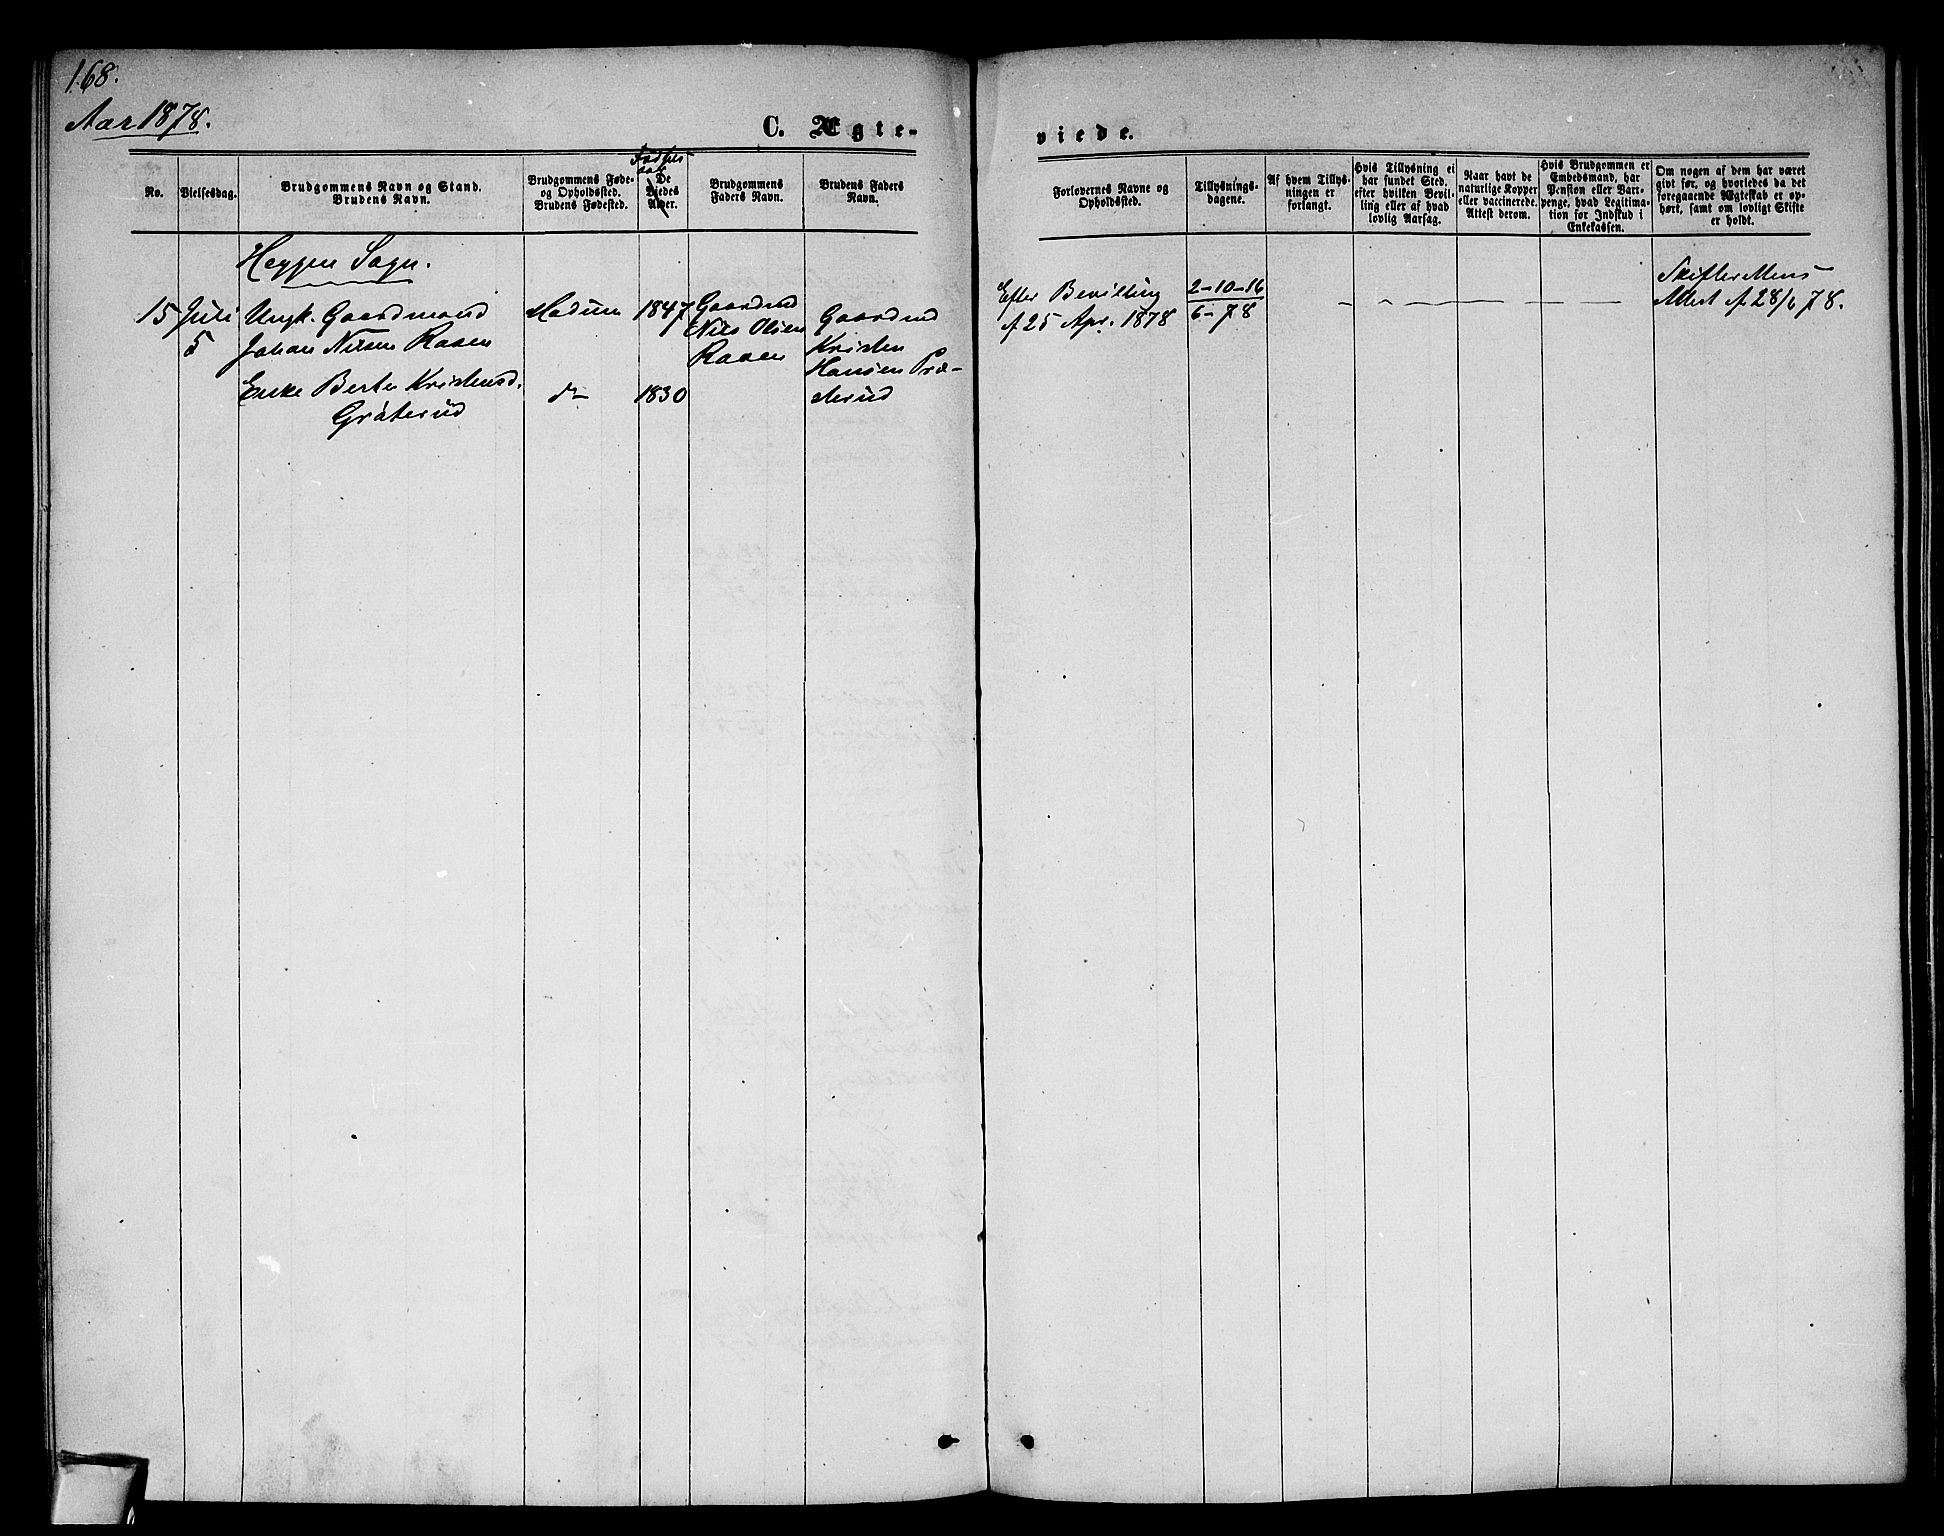 168.
Aar 1878.
C. Ægte-
viede.
No.
Vielsesdag.
Brudgommens Navn og Stand.
Brudens Navn.
Brudgommens Føde-
og Opholdssted.
Brudens Fødested.
Fødsels
aar
De
Viedes
Alder.
Brudgommens
Faders Navn.
Brudens Faders
Navn.
Forlovernes Navne og
Opholdssted.
Tillysnings-
dagene.
Af hvem Tillys-
ningen er
forlangt.
Hvis Tillysning ei
har fundet Sted,
efter hvilken Bevil-
ling eller af hvad
lovlig Aarsag.
Naar havt de
naturlige Kopper
eller vaccinerede.
Attest derom.
Hvis Brudgommen er
Embedsmand, har
Pension eller Vart-
penge, hvad Legitima-
tion for Indskud i
Enkekassen.
Om nogen af dem har været
givt før, og hvorledes da det
foregaaende Ægteskab er op-
hørt, samt om lovligt Skifte
er holdt.
Heggen Sogn.
15
Juli
5
Ungk. Gaardmand
Johan Nilsen Raaen
Enke Berte Kristensd.
Gråterud
Modum
do
1847
1830
Gaardmd
Nils Olsen
Raaen
Gaardmd
Kristen
Hansen Præ-
sterud
Efter Bevilling
af 25 Apr. 1878
2-10-16
6-78
Skifterettens
Attest af 28/6 78.